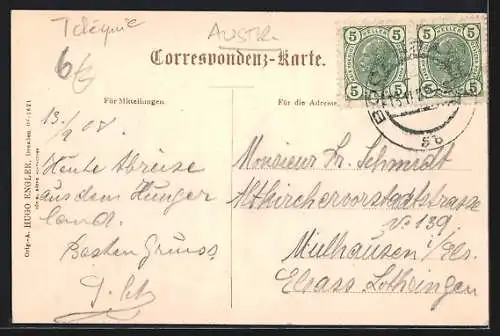 Téléquie
AUSTR.
6
Correspondenz-Karte.
Für Mitteilungen
Für die Adresse
5 5 5 5
HELLER HELLER
5 5 5 5
13/9 08.
Heute Abreise
aus dem Hunger
land.
Besten Gruss
Monsieur Fr. Schmidt
Altkirchervorstadtstrasse
No 139
Mülhausen i/Els.
Elsass Lothringen
5b
Orig.-A. HUGO ENGLER, Dresden